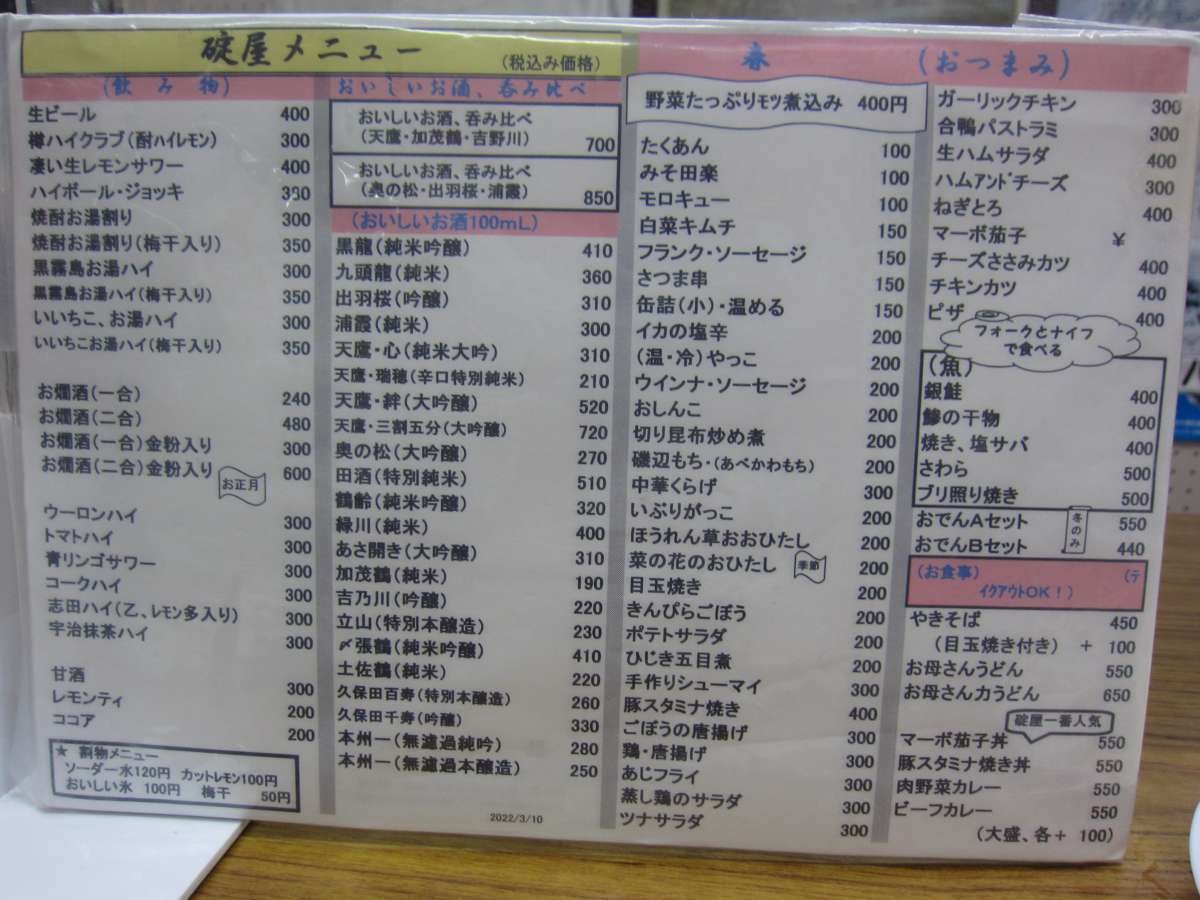 碇屋メニュー (税込み価格)
(飲み物)
生ビール 400
樽ハイクラブ(酎ハイレモン) 300
凄い生レモンサワー 400
ハイボール・ジョッキ
焼酎お湯割り 300
焼酎お湯割り(梅干入り) 350
黒霧島お湯ハイ 300
黒霧島お湯ハイ(梅干入り) 350
いいちこ、お湯ハイ 300
いいちこお湯ハイ(梅干入り) 350
お燗酒(一合) 240
お燗酒(二合) 480
お燗酒(一合)金粉入り 300
お燗酒(二合)金粉入り 600
お正月
ウーロンハイ 300
トマトハイ 300
青リンゴサワー 300
コークハイ 300
志田ハイ(乙、レモン多入り) 300
宇治抹茶ハイ 300
甘酒 300
レモンティ 200
ココア 200
★ 割物メニュー
ソーダー水120円 カットレモン100円
おいしい氷 100円 梅干 50円
おいしいお酒、呑み比べ
おいしいお酒、呑み比べ
(天鷹・加茂鶴・吉野川) 700
おいしいお酒、呑み比べ
(奥の松・出羽桜・浦霞) 850
(おいしいお酒100mL)
黒龍(純米吟醸) 410
九頭龍(純米) 360
出羽桜(吟醸) 310
浦霞(純米) 300
天鷹・心(純米大吟) 310
天鷹・瑞穂(辛口特別純米) 210
天鷹・絆(大吟醸) 520
天鷹・三割五分(大吟醸) 720
奥の松(大吟醸) 270
田酒(特別純米) 510
鶴齢(純米吟醸) 320
緑川(純米) 400
あさ開き(大吟醸) 310
加茂鶴(純米) 190
吉乃川(吟醸) 220
立山(特別本醸造) 230
〆張鶴(純米吟醸) 410
土佐鶴(純米) 220
久保田百寿(特別本醸造) 260
久保田千寿(吟醸) 330
本州一(無濾過純吟) 280
本州一(無濾過本醸造) 250
2022/3/10
春 (おつまみ)
野菜たっぷりモツ煮込み 400円
たくあん 100
みそ田楽 100
モロキュー 100
白菜キムチ 150
フランク・ソーセージ 150
さつま串 150
缶詰(小)・温める 150
イカの塩辛 200
(温・冷)やっこ 200
ウインナ・ソーセージ 200
おしんこ 200
切り昆布炒め煮 200
磯辺もち・(あべかわもち) 200
中華くらげ 300
いぶりがっこ 200
ほうれん草おおひたし 200
菜の花のおひたし 季節 200
目玉焼き 200
きんぴらごぼう 200
ポテトサラダ 200
ひじき五目煮 200
手作りシューマイ 300
豚スタミナ焼き 400
ごぼうの唐揚げ 300
鶏・唐揚げ 300
あじフライ 300
蒸し鶏のサラダ 300
ツナサラダ 300
ガーリックチキン 300
合鴨パストラミ 300
生ハムサラダ 400
ハムアンドチーズ 300
ねぎとろ 400
マーボ茄子 ¥
チーズささみカツ 400
チキンカツ 400
ピザ 400
フォークとナイフ
で食べる
(魚)
銀鮭 400
鯵の干物 400
焼き、塩サバ 400
さわら 500
ブリ照り焼き 500
おでんAセット 550
おでんBセット 440
冬のみ
(お食事) (テ
イクアウトOK!)
やきそば 450
(目玉焼き付き) + 100
お母さんうどん 550
お母さん力うどん 650
碇屋一番人気
マーボ茄子丼 550
豚スタミナ焼き丼 550
肉野菜カレー 550
ビーフカレー 550
(大盛、各+ 100)